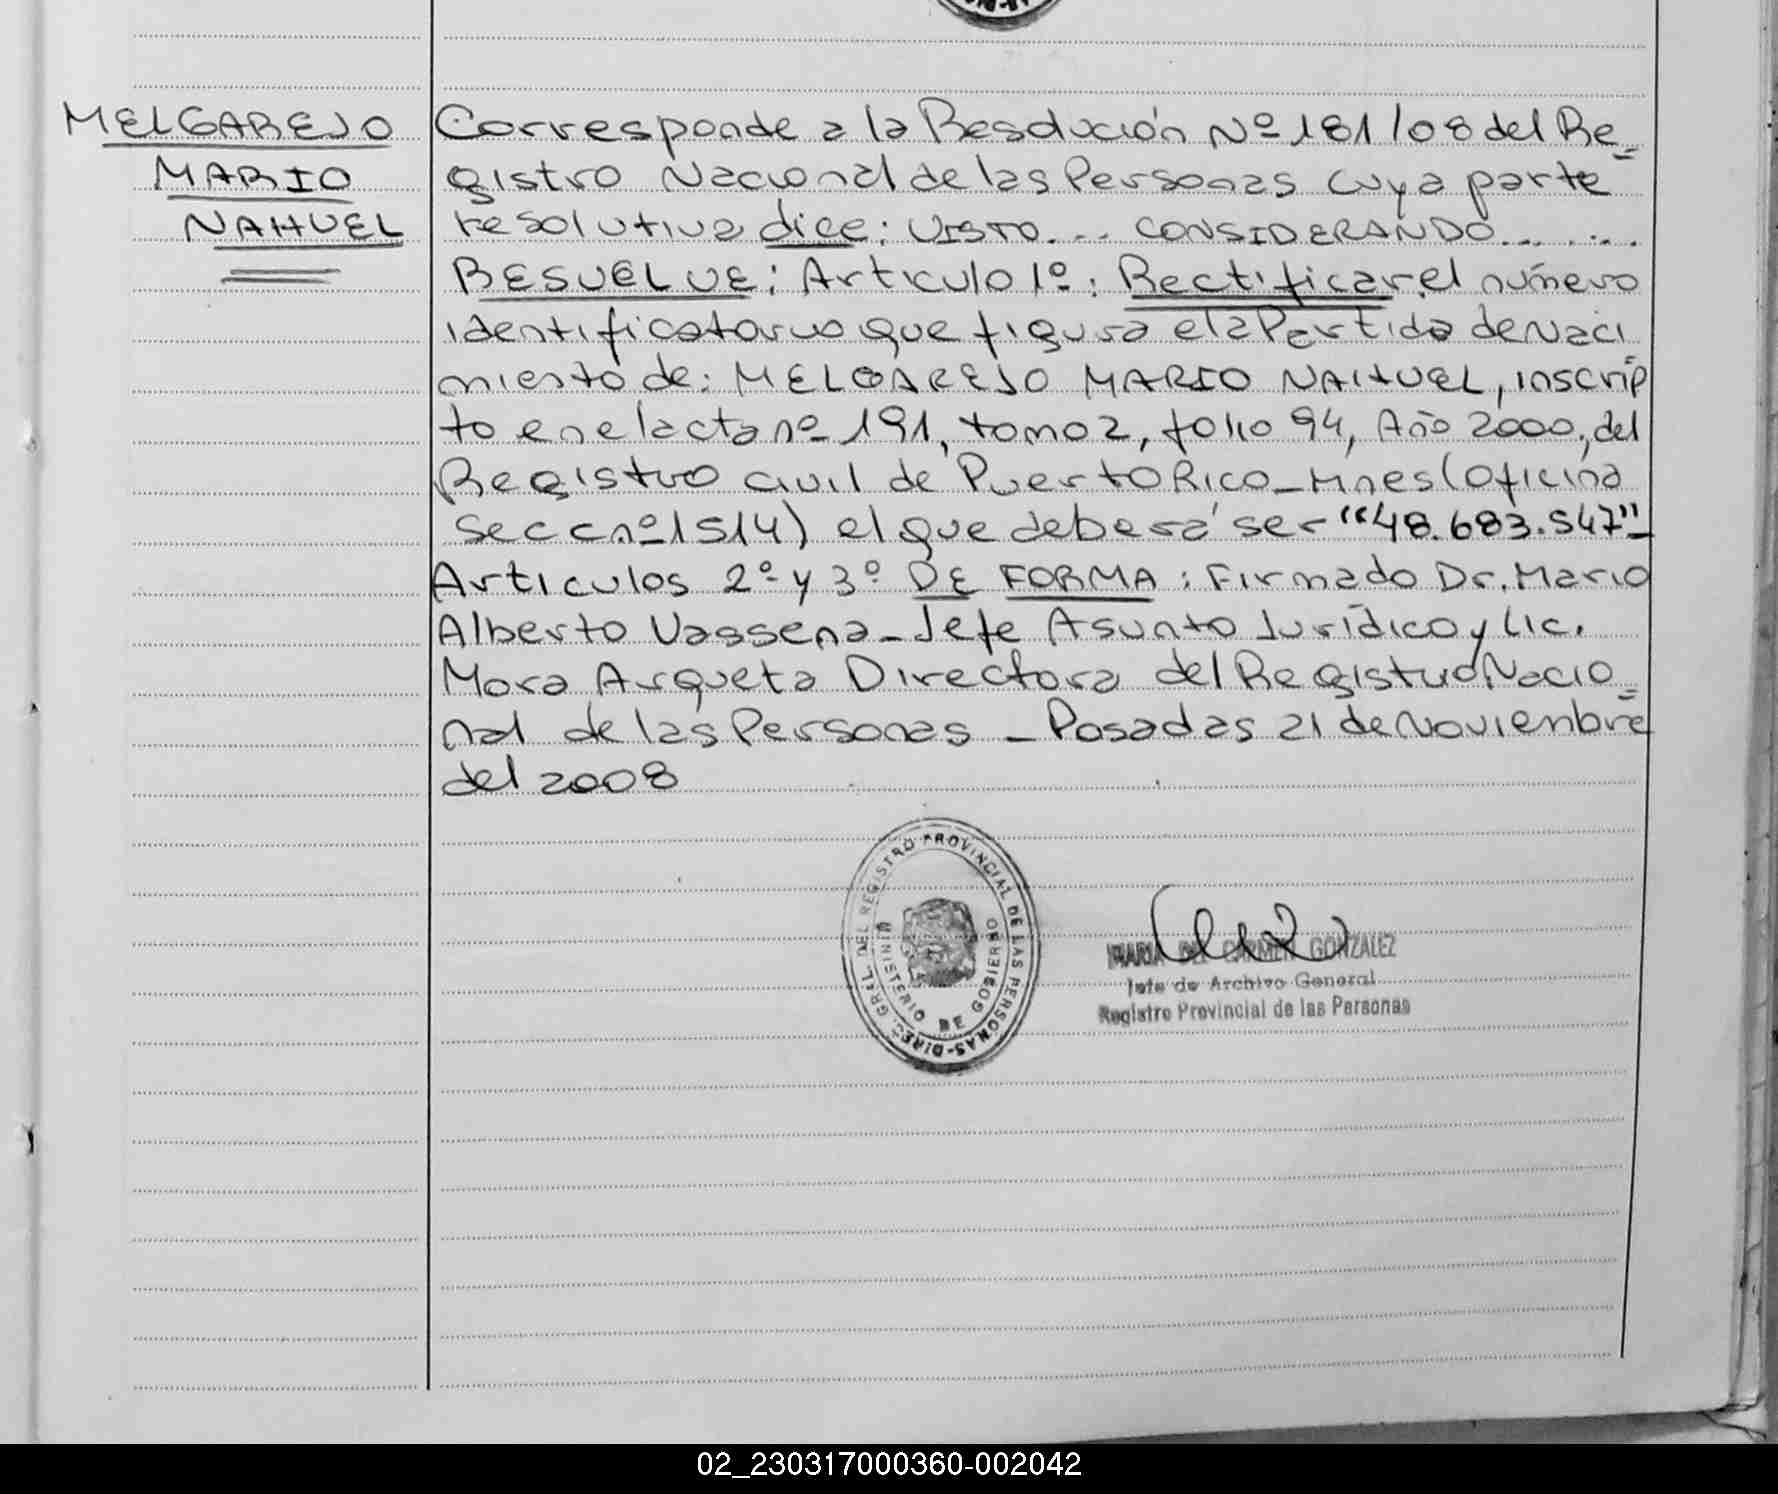 MELGAREJO
MARIO
NAHUEL
Corresponde a la Resolución Nº 181/08 del Re=
gistro Nacional de las Personas cuya parte
resolutiva dice: VISTO... CONSIDERANDO... ...
RESUELVE: Articulo 1º: Rectificar el número
identificatorio que figura e la Partida de Naci
miento de: MELGAREJO MARIO NAHUEL, inscrip
to en el acta nº 191, tomo 2, folio 94, Año 2000, del
Registro civil de Puerto Rico_Mnes (oficina
secc nº 1514) el que deberá ser "48.683.547"_
Articulos 2º y 3º DE FORMA: Firmado Dr. Mario
Alberto Vassena_Jefe Asunto Jurídico y Lic.
Mora Arqueta Directora del Registro Nacio=
nal de las Personas _ Posadas 21 de Noviembre
del 2008
GRAL. DEL REGISTRO PROVINCIAL DE LAS PERSONAS-DIREC.
MINISTERIO DE GOBIERNO
MARIA DEL CARMEN GONZALEZ
Jefe de Archivo General
Registro Provincial de las Personas
02_230317000360-002042